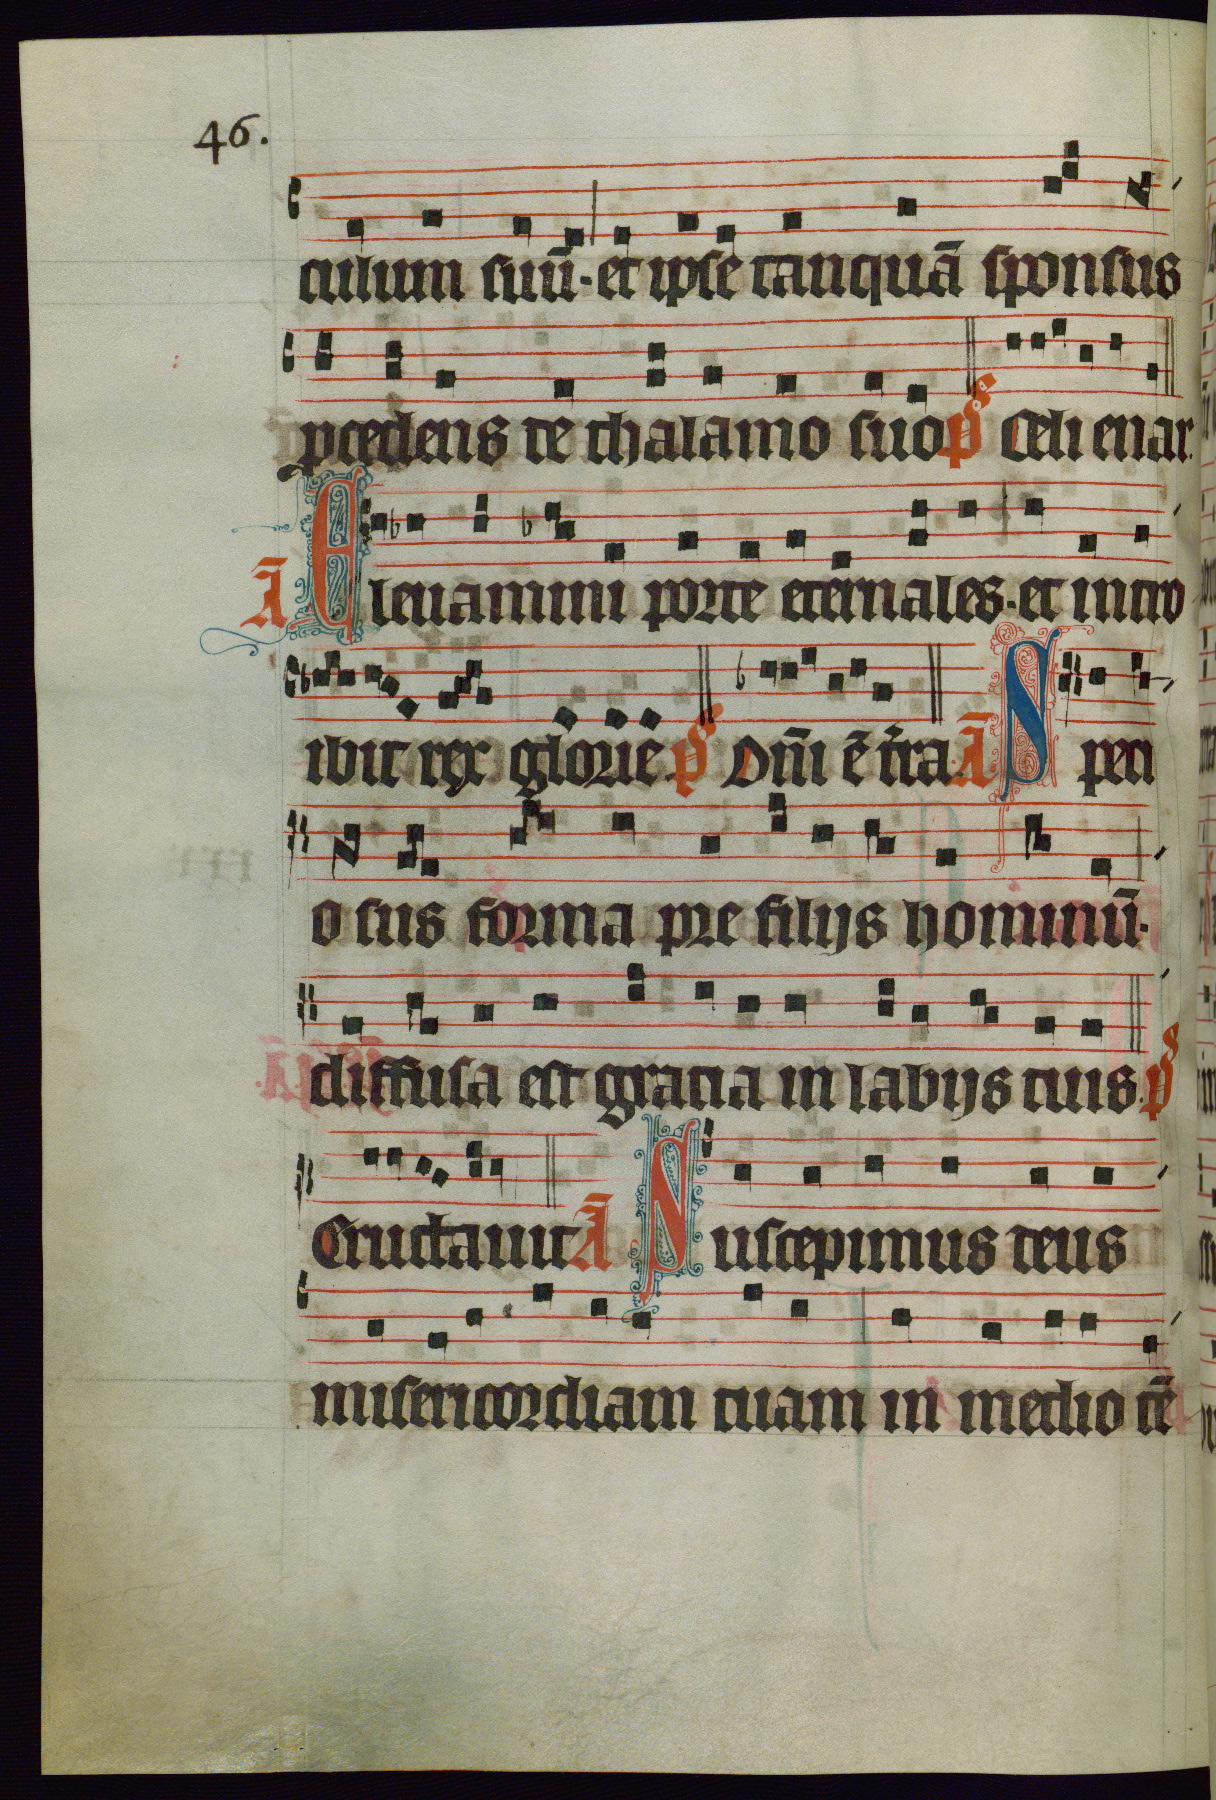 46.
culum suū· et ipse tanquā sponsus
p̱cedens de thalamo suo p̄s Celi enar.
Ā Eleuamini porte eternales· et intro
ibit rex glorie p̄s Dn̄i ē t̄ra Ā Speci
osus forma pre filijs hominū·
diffusa est gratia in labijs tuis. p̄s
Eructauit Ā Suscepimus deus
misericordiam tuam in medio tē